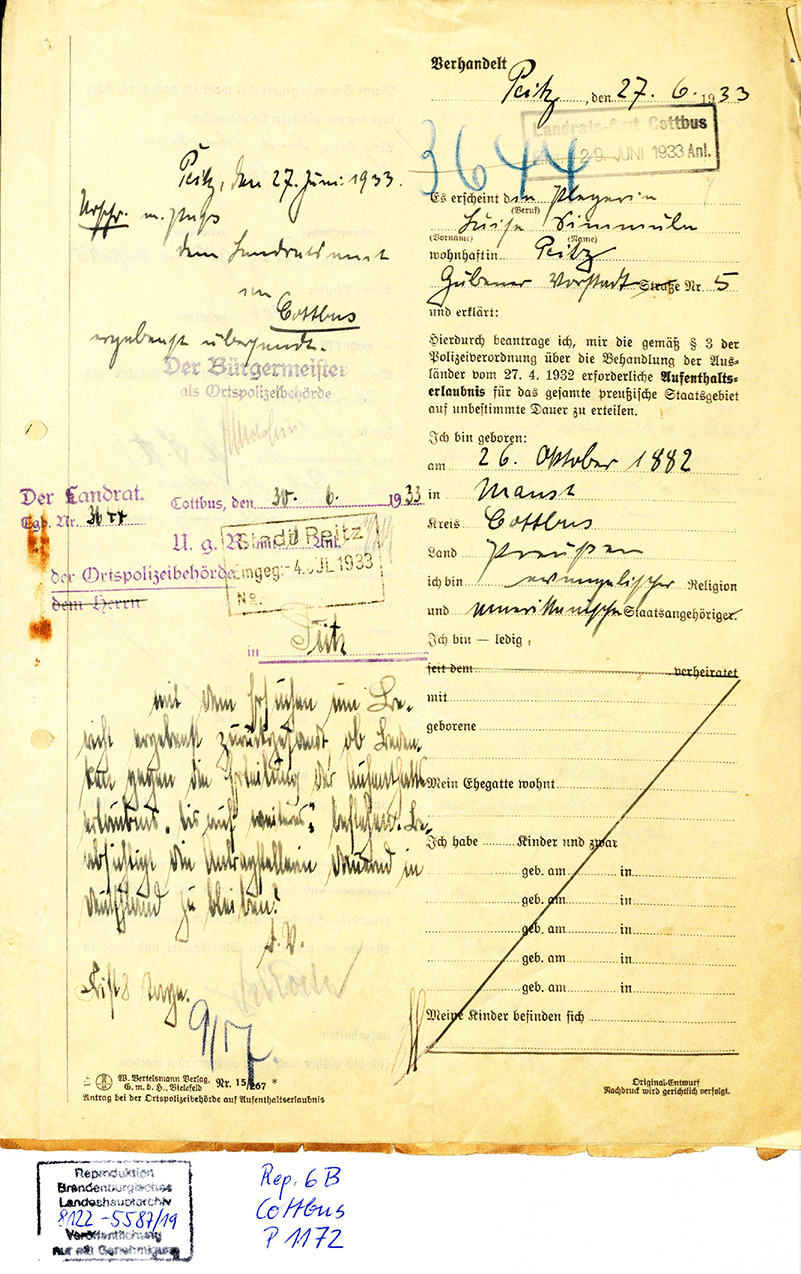 Verhandelt
Peitz, den 27. 6. 1933
Landrats-Amt Cottbus
29. JUNI 1933 Anl.
3644
Es erscheint die Pflegerin
(Beruf)
Luise
(Vorname) (Name)
wohnhaft in Peitz
Gubener Vorstadt Straße Nr. 5
und erklärt:
Hierdurch beantrage ich, mir die gemäß § 3 der
Polizeiverordnung über die Behandlung der Aus-
länder vom 27. 4. 1932 erforderliche Aufenthalts-
erlaubnis für das gesamte preußische Staatsgebiet
auf unbestimmte Dauer zu erteilen.
Ich bin geboren:
am 26. Oktober 1882
in Maust
Kreis Cottbus
Land Preußen
ich bin evangelischer Religion
und amerikanische Staatsangehöriger.
Ich bin — ledig,
seit dem verheiratet
mit
geborene
Mein Ehegatte wohnt
Ich habe Kinder und zwar
geb. am in
geb. am in
geb. am in
geb. am in
geb. am in
Meine Kinder befinden sich
Original-Entwurf
Nachdruck wird gerichtlich verfolgt.
Peitz, den 27. Juni 1933.
Urschr. m.
dem Landratsamt
in Cottbus
ergebenst übersandt.
Der Bürgermeister
als Ortspolizeibehörde
Der Landrat.
Cottbus, den 30. 6. 1933
Tgb. Nr. 3644
U. g. R. mit Anl.
Stadt Peitz
Eingeg. -4. JUL 1933
No.
der Ortspolizeibehörde
dem Herrn
in Peitz
mit dem Ersuchen um Be-
richt ergebenst zurückgesandt ob Beden-
ken gegen die Erteilung der Aufenthalts-
erlaubnis „bis auf weiteres“ bestehen. Be-
absichtigt die Antragstellerin dauernd in
Deutschland zu bleiben?
I. V.
Frist 8 Tage.
9/7
W. Bertelsmann Verlag,
G. m. b. H., Bielefeld Nr. 15/267 *
Antrag bei der Ortspolizeibehörde auf Aufenthaltserlaubnis
Reproduktion
Brandenburgisches
Landeshauptarchiv
8122-5587/19
Veröffentlichung
nur mit Genehmigung
Rep. 6B
Cottbus
P 1172